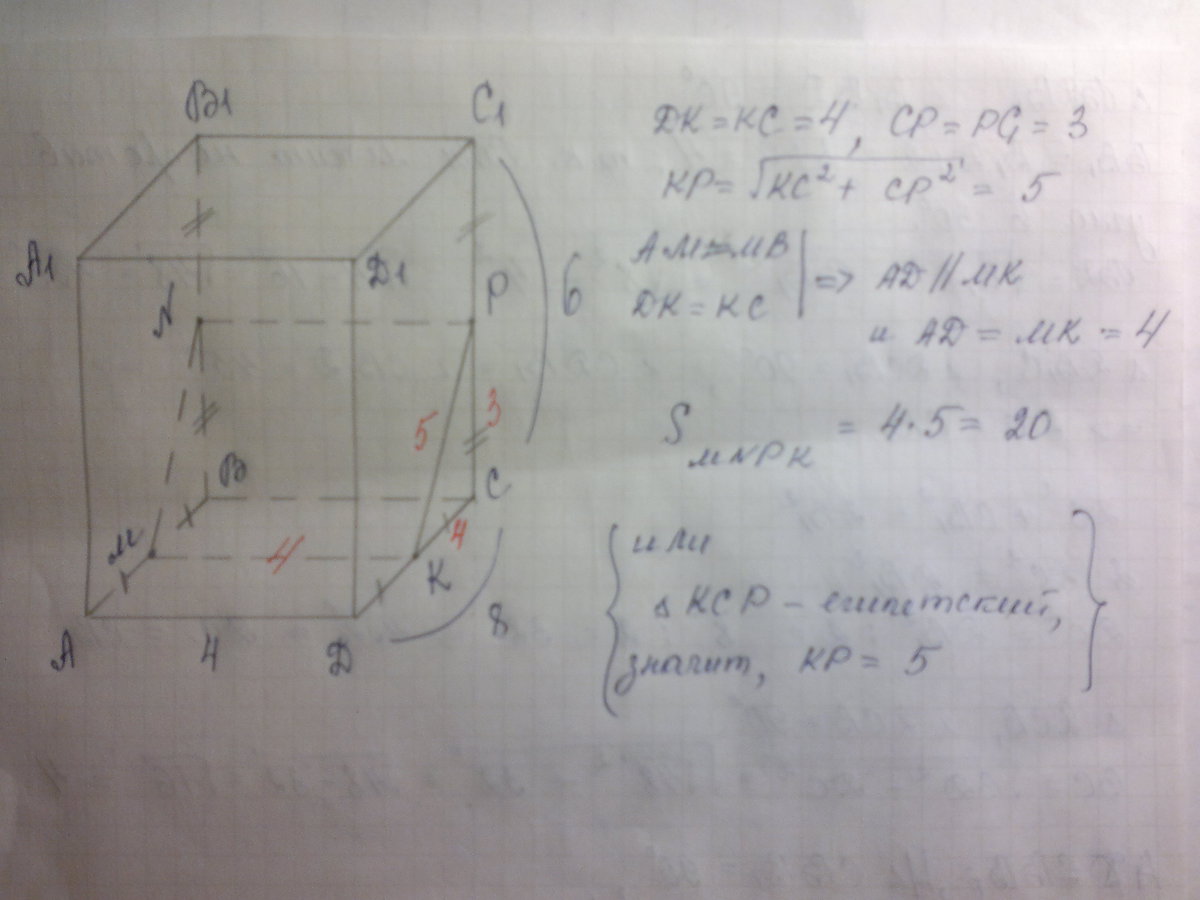 B1
C1
A1
D1
N
P
6
5
3
B
C
M
4
4
K
8
A
4
D
DK=KC=4, CP=PC₁=3
KP=√KC²+ CP² = 5
AM=MB
DK=KC
=> AD//MK
и AD = MK = 4
S MNPK = 4·5= 20
{ или
△ KCP – египетский,
значит, KP = 5 }